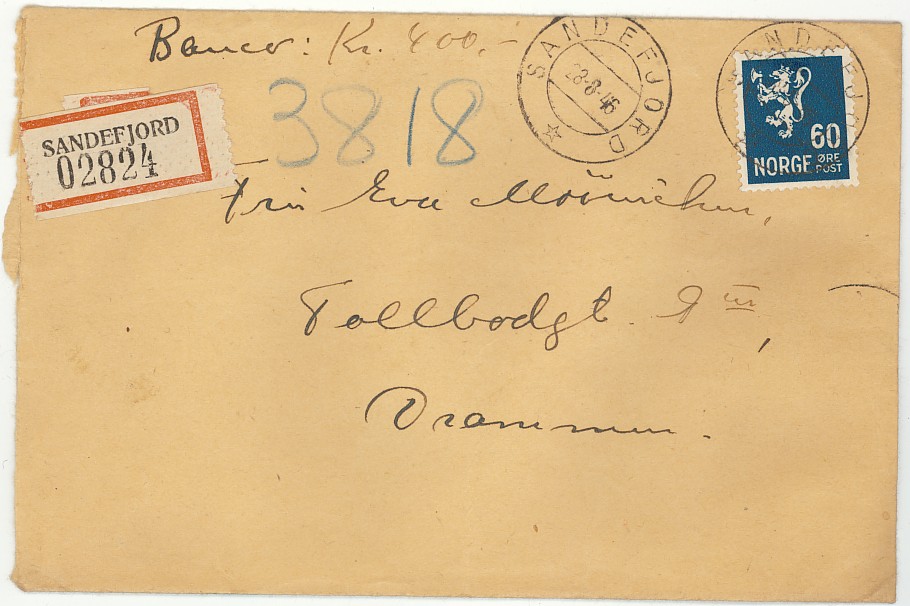 Banco: Kr. 400,-
SANDEFJORD
28-8-46
SANDEFJORD
60
NORGE ØRE
POST
SANDEFJORD
02824
3818
Eva
Tollbodgt. 9 III,
Drammen.